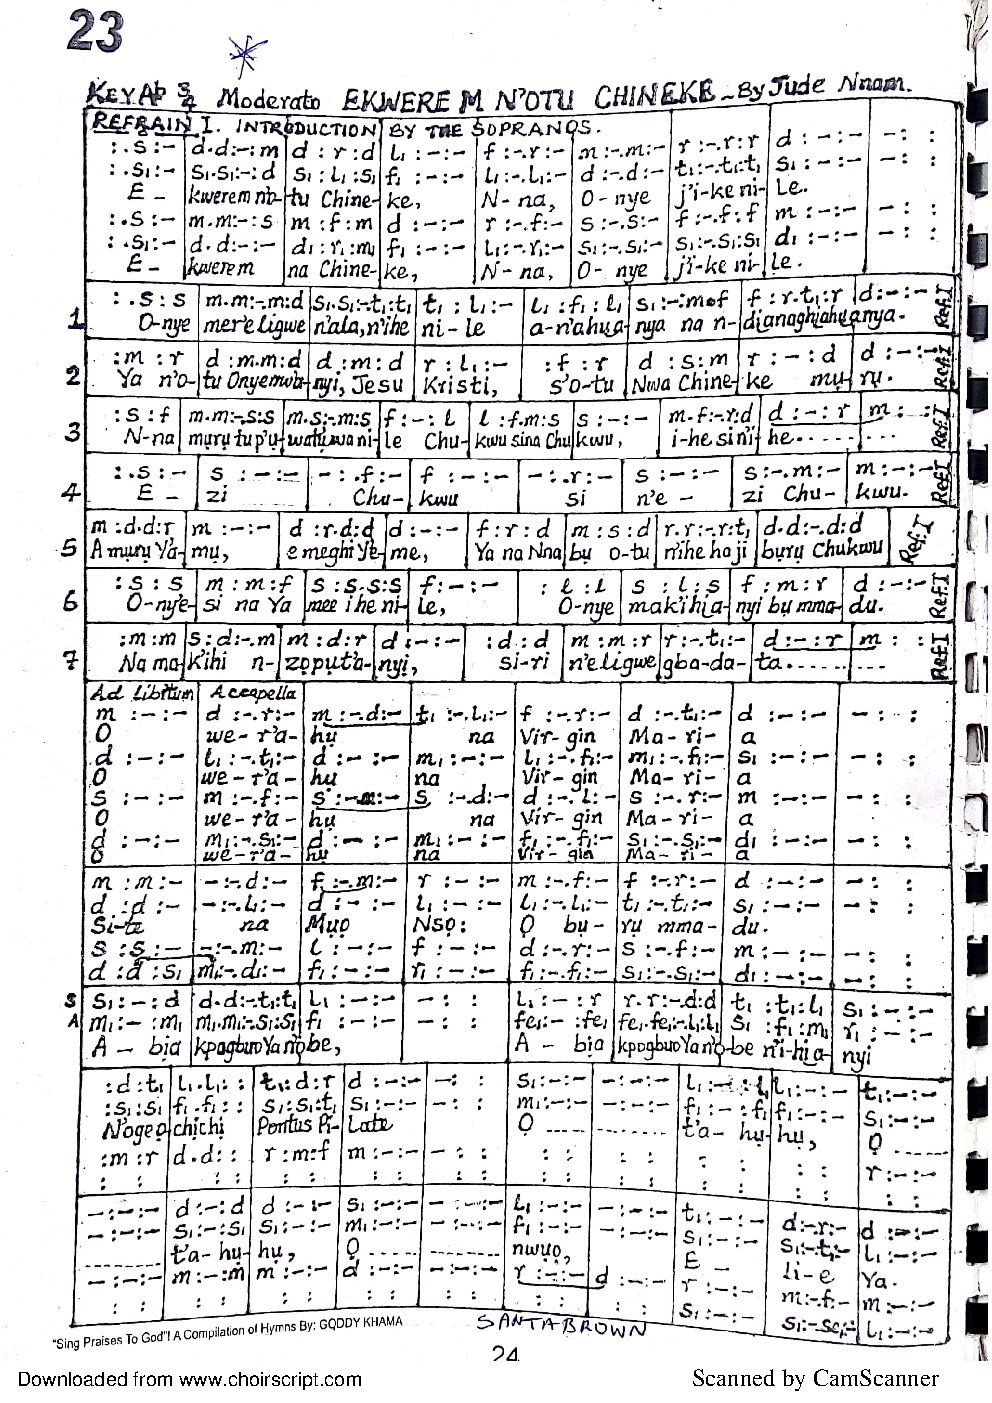 23
KEY Ab 3/4 Moderato EKWERE M N'OTU CHINEKE - By Jude Nnam.
REFRAIN I. INTRODUCTION BY THE SOPRANOS.
: . s : - | d . d : - : m | d : r : d | l₁ : - : - | f : - . r : - | m : - . m : - | r : - . r : r | d : - : - | - : :
: . s₁ : - | s₁ . s₁ : - : d | s₁ : l₁ : s₁ | f₁ : - : - | l₁ : - . l₁ : - | d : - . d : - | t₁ : - . t₁ : t₁ | s₁ : - : - | - : :
E - kwerem n'o- tu Chine- ke, N - na, O - nye j'i-ke ni- Le.
: . s : - | m . m : - : s | m : f : m | d : - : - | r : - . f : - | s : - . s : - | f : - . f : f | m : - : - | - : :
: . s₁ : - | d . d : - : - | d₁ : r₁ : m₁ | f₁ : - : - | l₁ : - . r₁ : - | s₁ : - . s₁ : - | s₁ : - . s₁ : s₁ | d₁ : - : - | - : :
E - kwerem na Chine- ke, N - na, O - nye j'i-ke ni- le.
: . s : s | m . m : - . m : d | s₁ . s₁ : - . t₁ : t₁ | t₁ : l₁ : - | l₁ : f₁ : l₁ | s₁ : - : m of | f : r . t₁ : r | d : - : - Ref. I
1 O-nye mer'e ligwe n'ala, n'ihe ni - le a-n'ahụa nya na n- dianaghiahụanya.
: m : r | d : m . m : d | d : m : d | r : l₁ : - | : f : r | d : s : m | r : - : d | d : - : - Ref. I
2 Ya n'o- tu Onyenwa- nyi, Jesu Kristi, s'o-tu Nwa Chine- ke mụ- rụ.
: s : f | m . m : - . s : s | m . s : - . m : s | f : - : l | l : f . m : s | s : - : - | m . f : - . r : d | d : - : r | m : : Ref. I
3 N-na mụrụ tu p'ụ- watụwa ni- le Chu- kwu sina Chu kwu, i-he si n'i he...... ......
: . s : - | s : - : - | - : . f : - | f : - : - | - : . r : - | s : - : - | s : - . m : - | m : - : - Ref I
4 E - zi Chu- kwu si n'e - zi Chu- kwu.
m : d . d : r | m : - : - | d : r . d : d | d : - : - | f : r : d | m : s : d | r . r : - . r : t₁ | d . d : - . d : d Ref. I
5 A mụrụ Ya- mụ, e meghi Ye- me, Ya na Nna bụ o-tu n'ihe ha ji bụrụ Chukwu
: s : s | m : m : f | s : s . s : s | f : - : - | : l : l | s : l : s | f : m : r | d : - : - Ref. I
6 O-nye- si na Ya mee ihe ni- le, O-nye makịhịa- nyi bụ mma- dụ.
: m : m | s : d : - . m | m : d : r | d : - : - | : d : d | m : m : r | r : - . t₁ : - | d : - : r | m : : Ref. I
7 Na ma- k'ihi n- zọpụt'a- nyi, si-ri n'eligwe gba-da- ta...... ......
Ad Libitum Accapella
m : - : - | d : - . r : - | m : - . d : - | t₁ : - . l₁ : - | f : - . r : - | d : - . t₁ : - | d : - : - | - : :
O we- r'a- hụ na Vir- gin Ma- ri- a
d : - : - | l₁ : - . t₁ : - | d : - : - | m₁ : - : - | l₁ : - . f₁ : - | m₁ : - . f₁ : - | s₁ : - : - | - : :
O we- r'a - hụ na Vir- gin Ma- ri- a
s : - : - | m : - . f : - | s : - . m : - | s : - . d : - | d : - . l₁ : - | s : - . r : - | m : - : - | - : :
O we- r'a - hụ na Vir- gin Ma- ri- a
d : - : - | m₁ : - . s₁ : - | d : - : - | m₁ : - : - | f₁ : - . f₁ : - | s₁ : - . s₁ : - | d₁ : - : - | - : :
O we- r'a- hụ na Vir- gin Ma- ri- a
m : m : - | - : - . d : - | f : - . m : - | r : - : - | m : - . f : - | f : - . r : - | d : - : - | - : :
d : d : - | - : - . l₁ : - | d : - : - | l₁ : - : - | l₁ : - . l₁ : - | t₁ : - . t₁ : - | s₁ : - : - | - : :
Si-te na Mụọ Nsọ: Ọ bụ- rụ mma- dụ.
s : s : - | - : - . m : - | l : - : - | f : - : - | d : - . r : - | s : - . f : - | m : - : - | - : :
d : d : s₁ | m₁ : - . d₁ : - | f₁ : - : - | r₁ : - : - | f₁ : - . f₁ : - | s₁ : - . s₁ : - | d₁ : - : - | - : :
S s₁ : - : d | d . d : - t₁ : t₁ | l₁ : - : - | - : : | l₁ : - : r | r . r : - . d : d | t₁ : t₁ : l₁ | s₁ : - : -
A m₁ : - : m₁ | m₁ . m₁ : - . s₁ : s₁ | f₁ : - : - | - : : | fe₁ : - : fe₁ | fe₁ . fe₁ : - . l₁ : l₁ | s₁ : f₁ : m₁ | r₁ : - : -
A - bịa kpọgbuo Ya n'o be, A - bịa kpọgbuo Ya n'o- be n'i-hi a- nyi
: d : t₁ | l₁ . l₁ : : | t₁ : d : r | d : - : - | - : : | s₁ : - : - | - : - : - | l₁ : - : l₁ | l₁ : - : - | t₁ : - : -
: s₁ : s₁ | f₁ . f₁ : : | s₁ : s₁ : t₁ | s₁ : - : - | - : : | m₁ : - : - | - : - : - | f₁ : - : f₁ | f₁ : - : - | s₁ : - : -
N'oge ọ- chịchị Pontus Pi- Late Ọ ...... ...... t'a- hụ- hụ, Ọ ......
: m : r | d . d : : | r : m : f | m : - : - | - : : | : : | : : | : : | : : | r : - : -
: : | : : | : : | : : | : : | : : | : : | : : | : : | : :
- : - : - | d : - : d | d : - : - | s₁ : - : - | - : - : - | l₁ : - : - | - : - : - | t₁ : - : - | d : - . r : - | d : - : -
- : - : - | s₁ : - : s₁ | s₁ : - : - | m₁ : - : - | - : - : - | f₁ : - : - | - : - : - | s₁ : - : - | s₁ : - . t₁ : - | l₁ : - : -
...... t'a- hụ- hụ, Ọ ...... ...... nwụọ, E - li - e Ya.
- : - : - | m : - : m | m : - : - | d : - : - | - : - : - | r : - : - | d : - : - | r : - : - | m : - . f : - | m : - : -
: : | : : | : : | : : | : : | : : | : : | s₁ : - : - | s₁ : - . se₁ : - | l₁ : - : -
"Sing Praises To God"! A Compilation of Hymns By: GODDY KHAMA
SANTABROWN
24
Downloaded from www.choirscript.com
Scanned by CamScanner